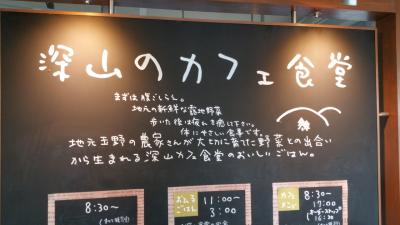 深山のカフェ食堂
まずは腹ごしらえ。
地元の新鮮な露地野菜
歩いた後は疲れを癒して下さい。
体にやさしい食事です。
地元玉野の農家さんが大切に育てた野菜との出合い
から生まれる深山カフェ食堂のおいしいごはん。
8:30〜
おひる
ごはん
11:00〜
3:00
カフェ
8:30〜
17:00
オーダーストップ
16:30